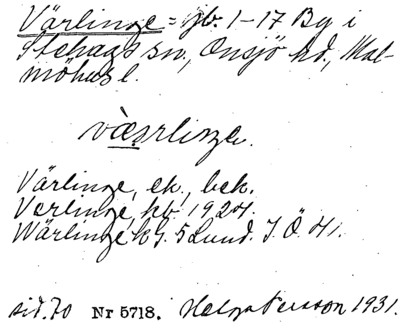 Värlinge = gb. 1-17 By i
Stehags sn, Onsjö hd, Mal-
möhus l.
væsrlinge.
Värlinge, ek., bek.
Verlinge, kb 1924.
Wärlinge, k J. 5 Lund. I. Ö. 41.
sid. 70 Nr 5718. Helge Persson 1931.